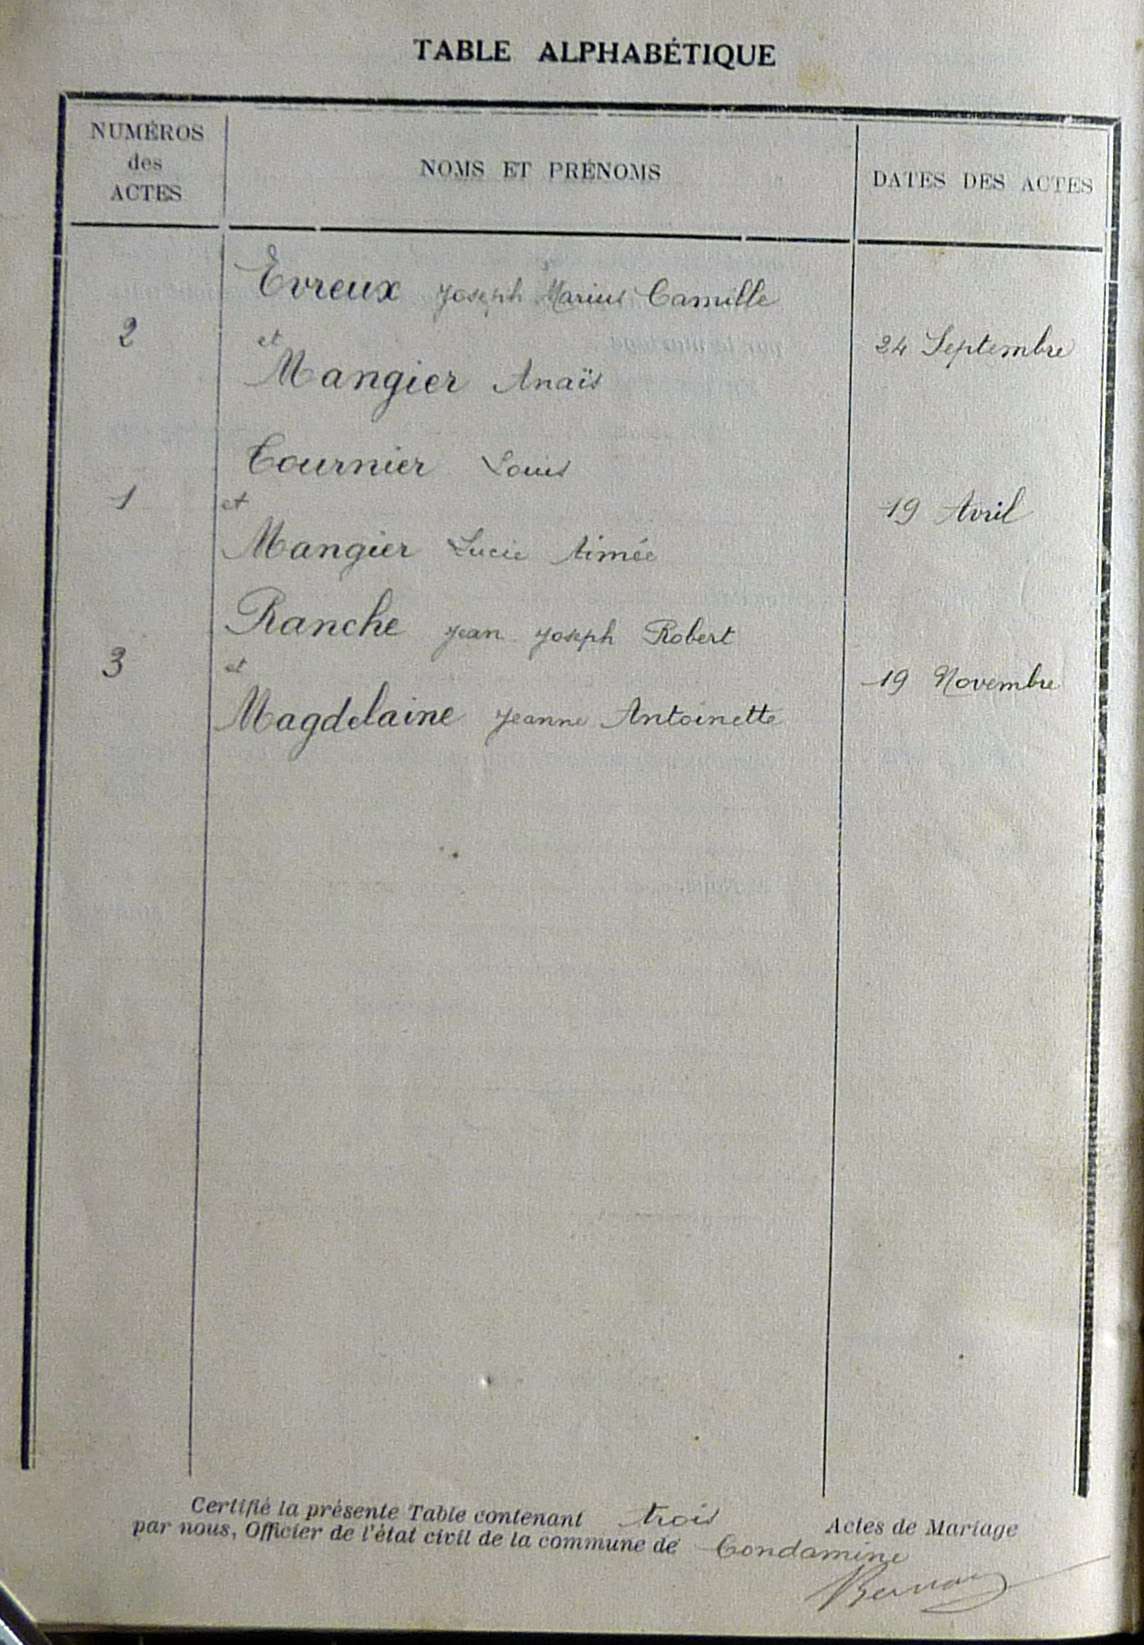 TABLE ALPHABÉTIQUE
NUMÉROS
des
ACTES
NOMS ET PRÉNOMS
DATES DES ACTES
Evreux Joseph Marius Camille
2 et 24 Septembre
Mangier Anaïs
Tournier Louis
1 et 19 Avril
Mangier Lucie Aimée
Ranche Jean Joseph Robert
3 et 19 Novembre
Magdelaine Jeanne Antoinette
Certifié la présente Table contenant trois Actes de Mariage
par nous, Officier de l'état civil de la commune de Condamine